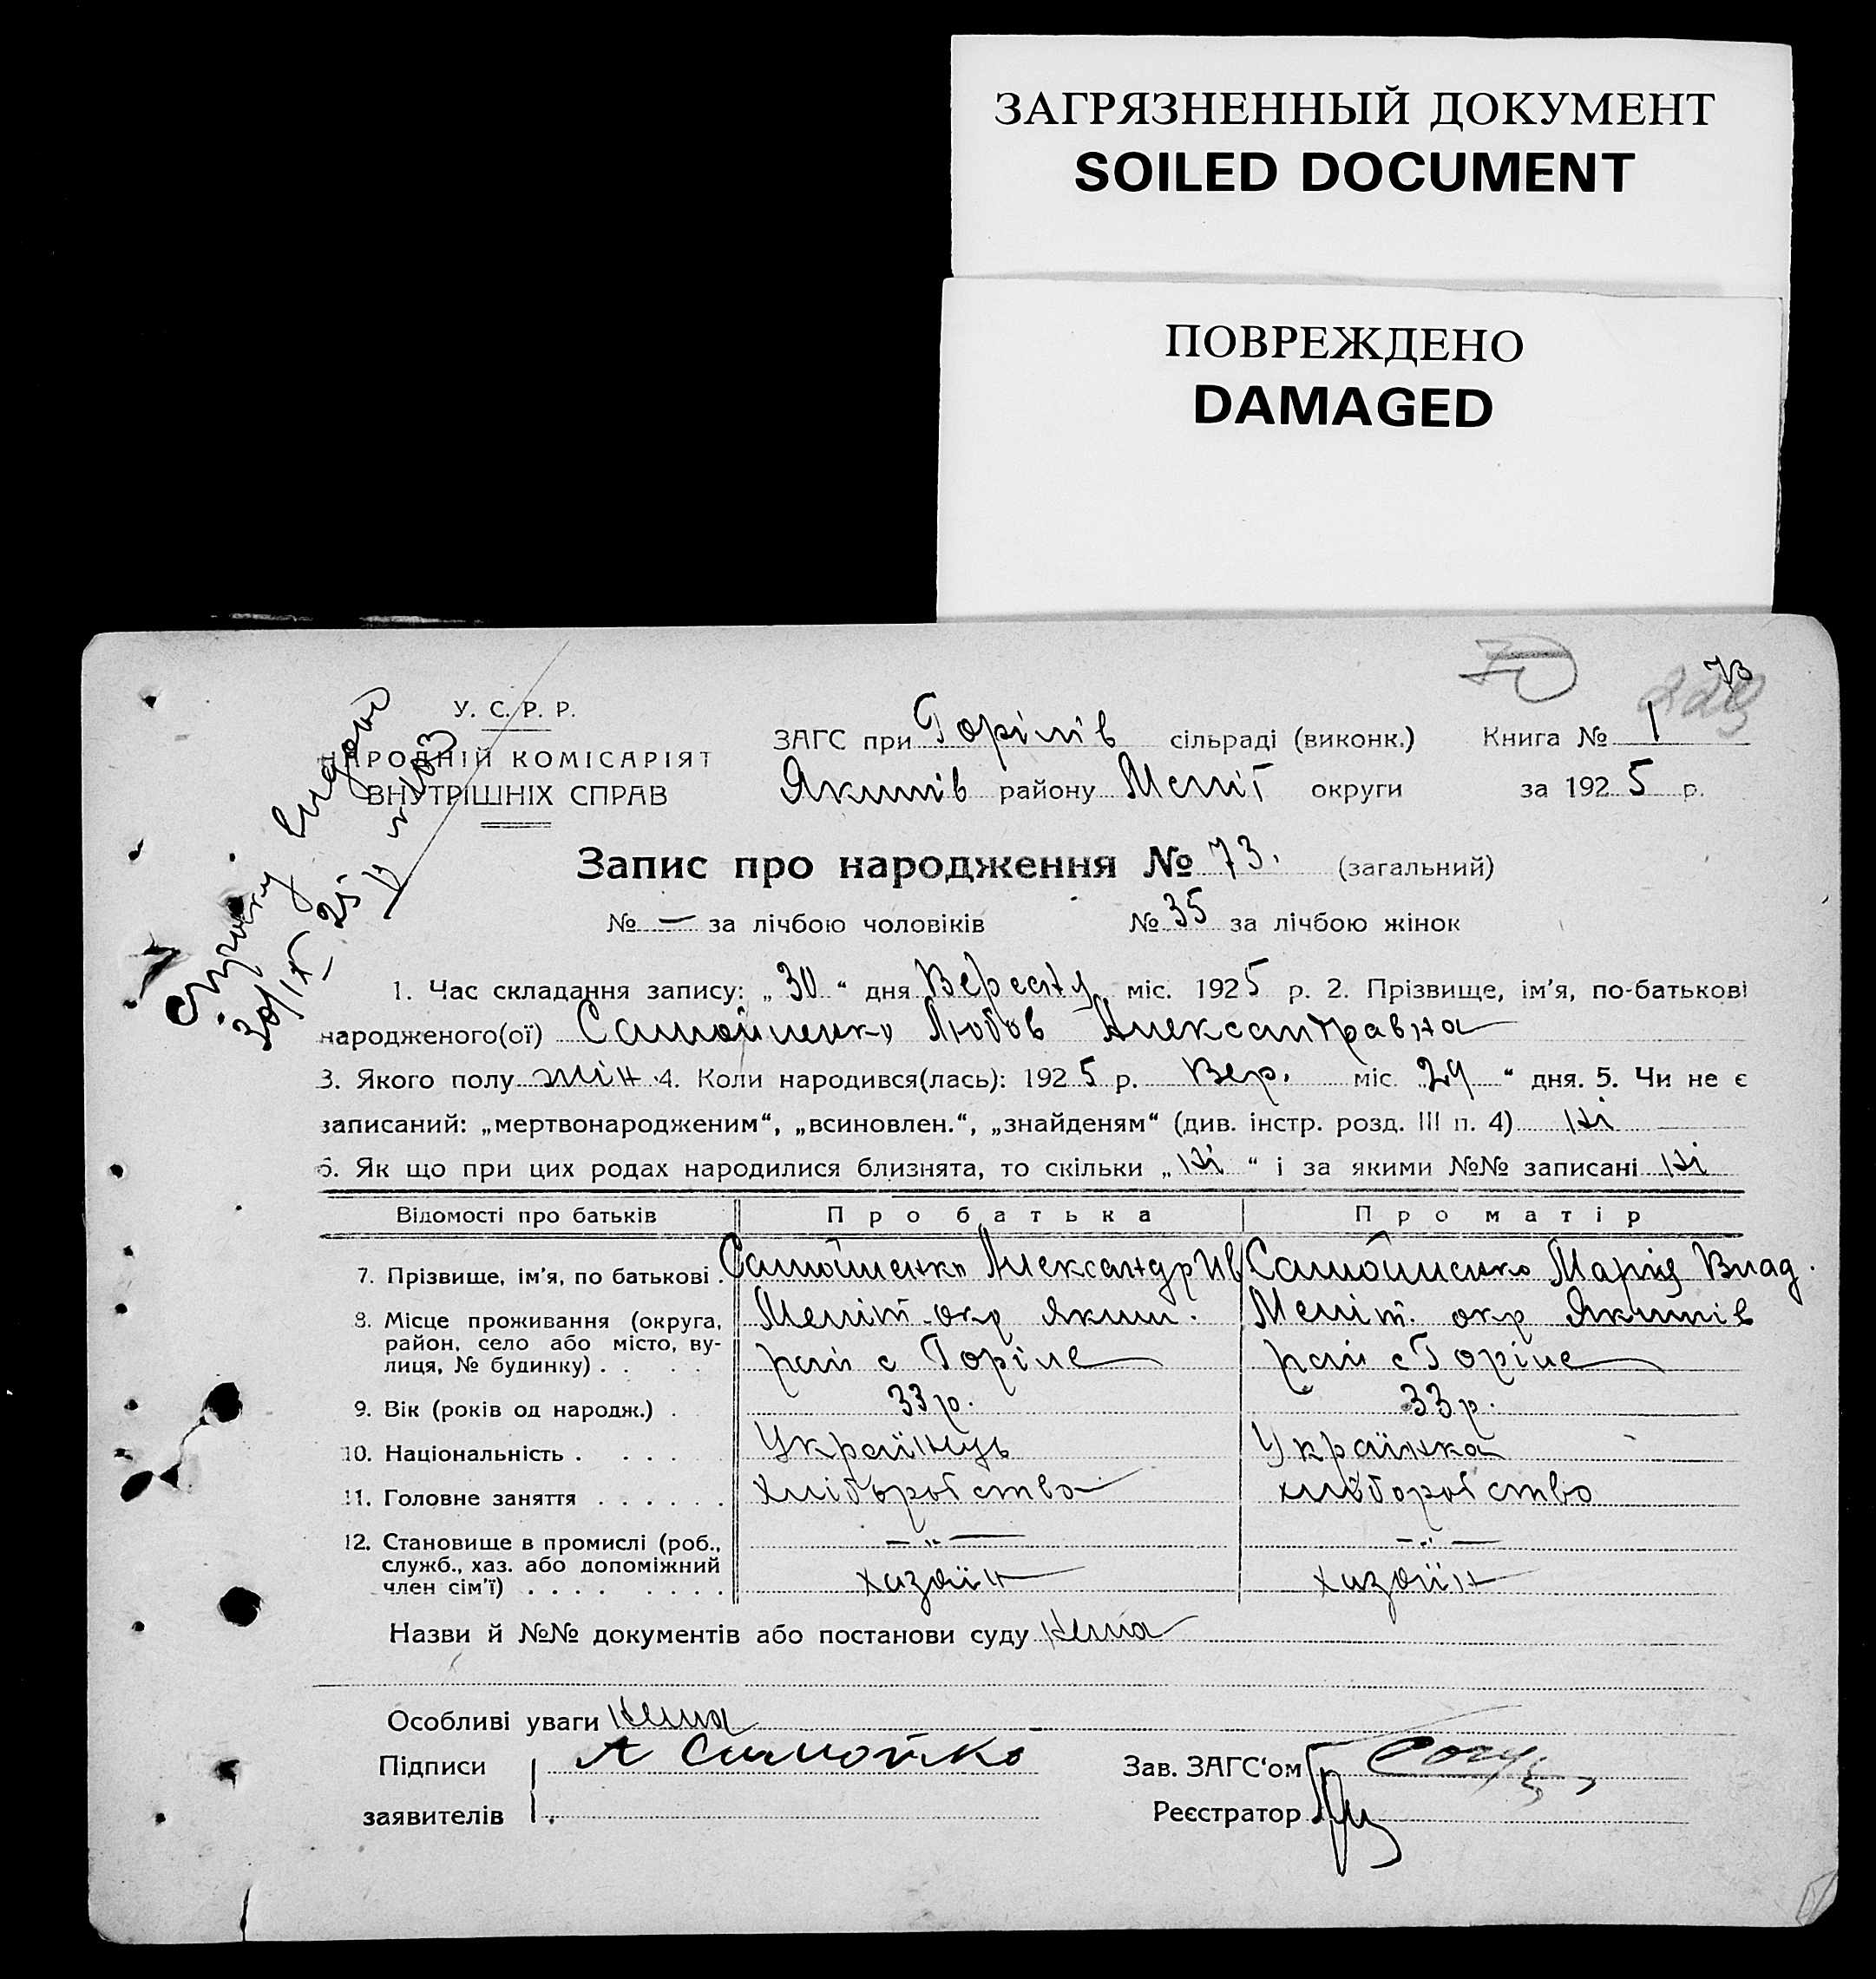 ЗАГРЯЗНЕННЫЙ ДОКУМЕНТ
SOILED DOCUMENT
ПОВРЕЖДЕНО
DAMAGED
70
73
У. С. Р. Р.
НАРОДНІЙ КОМІСАРІЯТ
ВНУТРІШНІХ СПРАВ
30/IX 25
ЗАГС при Горілів сільраді (виконк.) Книга № 1
Якимів району Меліт округи за 1925 р.
Запис про народження № 73. (загальний)
№ — за лічбою чоловіків № 35 за лічбою жінок
1. Час складання запису: „ 30 “ дня Вересня міс. 1925 р. 2. Прізвище, ім'я, по-батькові
народженого(ої) Самойленко Любов Александравна
3. Якого полу жін. 4. Коли народився(лась): 1925 р. Вер. міс. 29 “ дня. 5. Чи не є
записаний: „мертвонародженим“, „всиновлен.“, „знайденям“ (див. інстр. розд. III п. 4) ні
6. Як що при цих родах народилися близнята, то скільки „ ні “ і за якими №№ записані ні
Відомості про батьків Про батька Про матір
7. Прізвище, ім'я, по батькові . Самойленко Александр Ів Самойленко Марія Влад.
8. Місце проживання (округа, район, село або місто, вулиця, № будинку) . . Меліт. окр Яким. Меліт. окр Якимів
рай с Горіле рай с Горіле
9. Вік (років од народж.) . 33 р. 33 р.
10. Національність . . . . Українець Українка
11. Головне заняття . . . . . . хліборобство хліборобство
12. Становище в промислі (роб., — „ — — „ —
служб., хаз. або допоміжний
член сім'ї) . . . . . . . . хазяїн хазяїн
Назви й №№ документів або постанови суду нема
Особливі уваги нема
Підписи А Самойлко Зав. ЗАГС'ом
заявителів Реєстратор